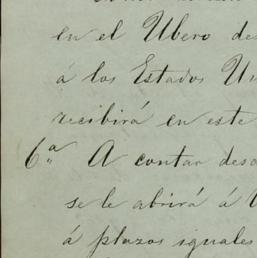 en el Ubero de
á los Estados Un
recibirá en este
6ª A contar desd
se le abrirá á
á plazos iguales